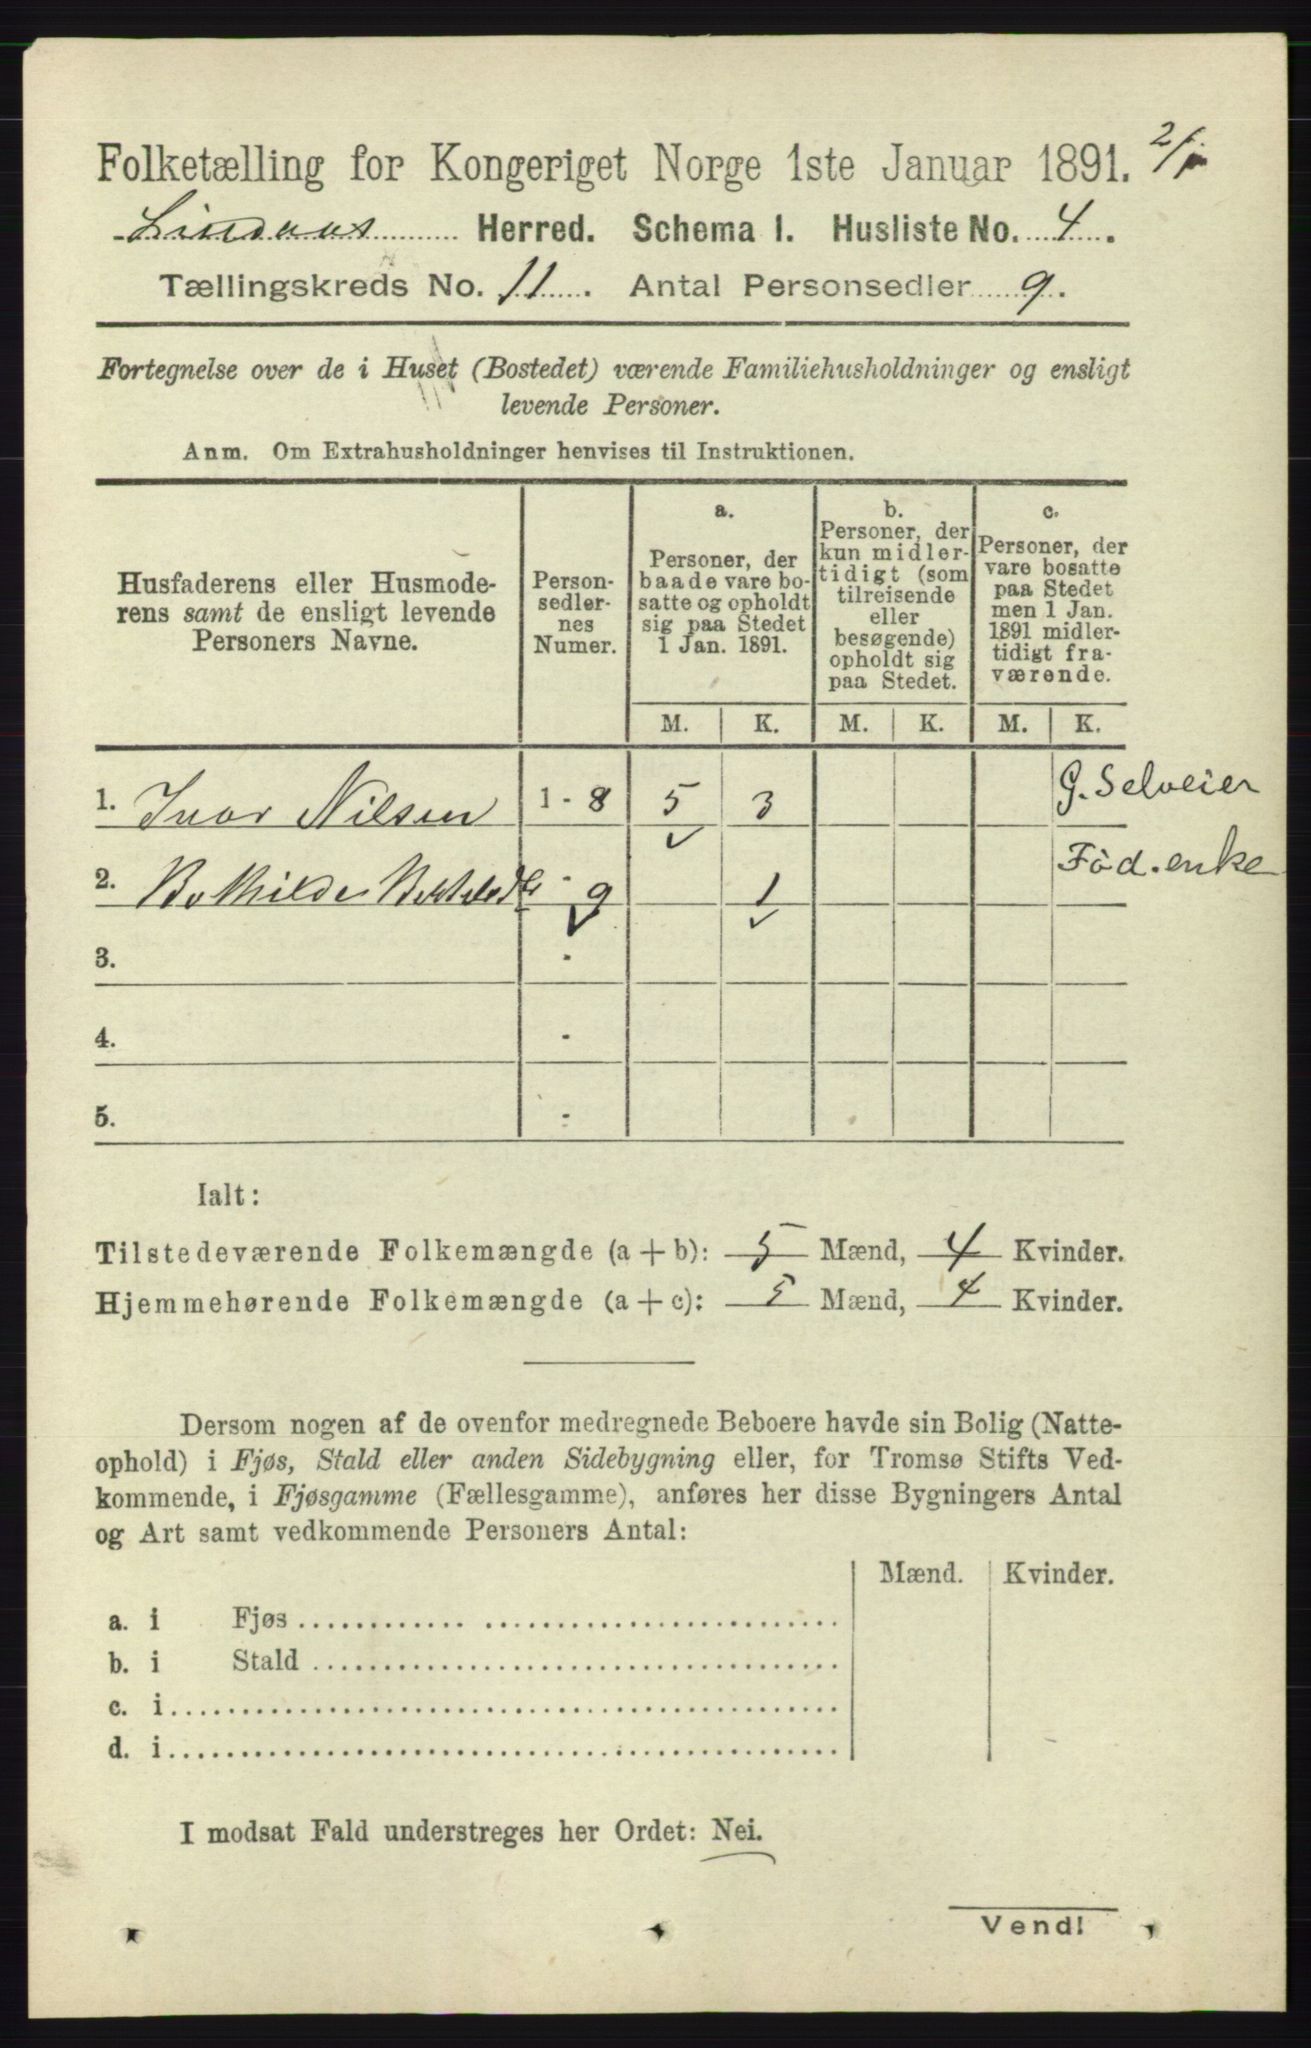 2/1
Folketælling for Kongeriget Norge 1ste Januar 1891.
Lindaas Herred. Schema 1. Husliste No. 4.
Tællingskreds No. 11. Antal Personsedler 9.
Fortegnelse over de i Huset (Bostedet) værende Familiehusholdninger og ensligt
levende Personer.
Anm. Om Extrahusholdninger henvises til Instruktionen.
Husfaderens eller Husmode-
rens samt de ensligt levende
Personers Navne.
Person-
sedler-
nes
Numer.
a.
Personer, der
baade vare bo-
satte og opholdt
sig paa Stedet
1 Jan. 1891.
b.
Personer, der
kun midler-
tidigt (som
tilreisende
eller
besøgende)
opholdt sig
paa Stedet.
c.
Personer, der
vare bosatte
paa Stedet
men 1 Jan.
1891 midler-
tidigt fra-
værende.
M. K. M. K. M. K.
1. Ivar Nilsen 1 - 8 5 3 G. Selveier
2. Bothilde - 9 1 Fød. enke
3. -
4. -
5. -
Ialt:
Tilstedeværende Folkemængde (a + b): 5 Mænd, 4 Kvinder.
Hjemmehørende Folkemængde (a + c): 5 Mænd, 4 Kvinder.
Dersom nogen af de ovenfor medregnede Beboere havde sin Bolig (Natte-
ophold) i Fjøs, Stald eller anden Sidebygning eller, for Tromsø Stifts Ved-
kommende, i Fjøsgamme (Fællesgamme), anføres her disse Bygningers Antal
og Art samt vedkommende Personers Antal:
Mænd. Kvinder.
a. i Fjøs
b. i Stald
c. i
d. i
I modsat Fald understreges her Ordet: Nei.
Vend!